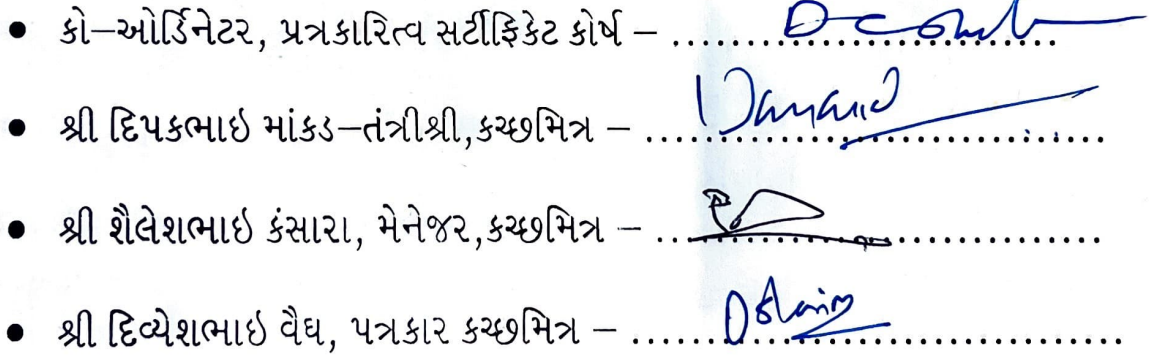 • કો–ઓર્ડિનેટર, પ્રત્રકારિત્વ સર્ટીફિકેટ કોર્ષ – ..............................
• શ્રી દિપકભાઇ માંકડ–તંત્રીશ્રી,કચ્છમિત્ર – ..............................
• શ્રી શૈલેશભાઇ કંસારા, મેનેજર,કચ્છમિત્ર – ..............................
• શ્રી દિવ્યેશભાઇ વૈદ્ય, પત્રકાર કચ્છમિત્ર – ..............................